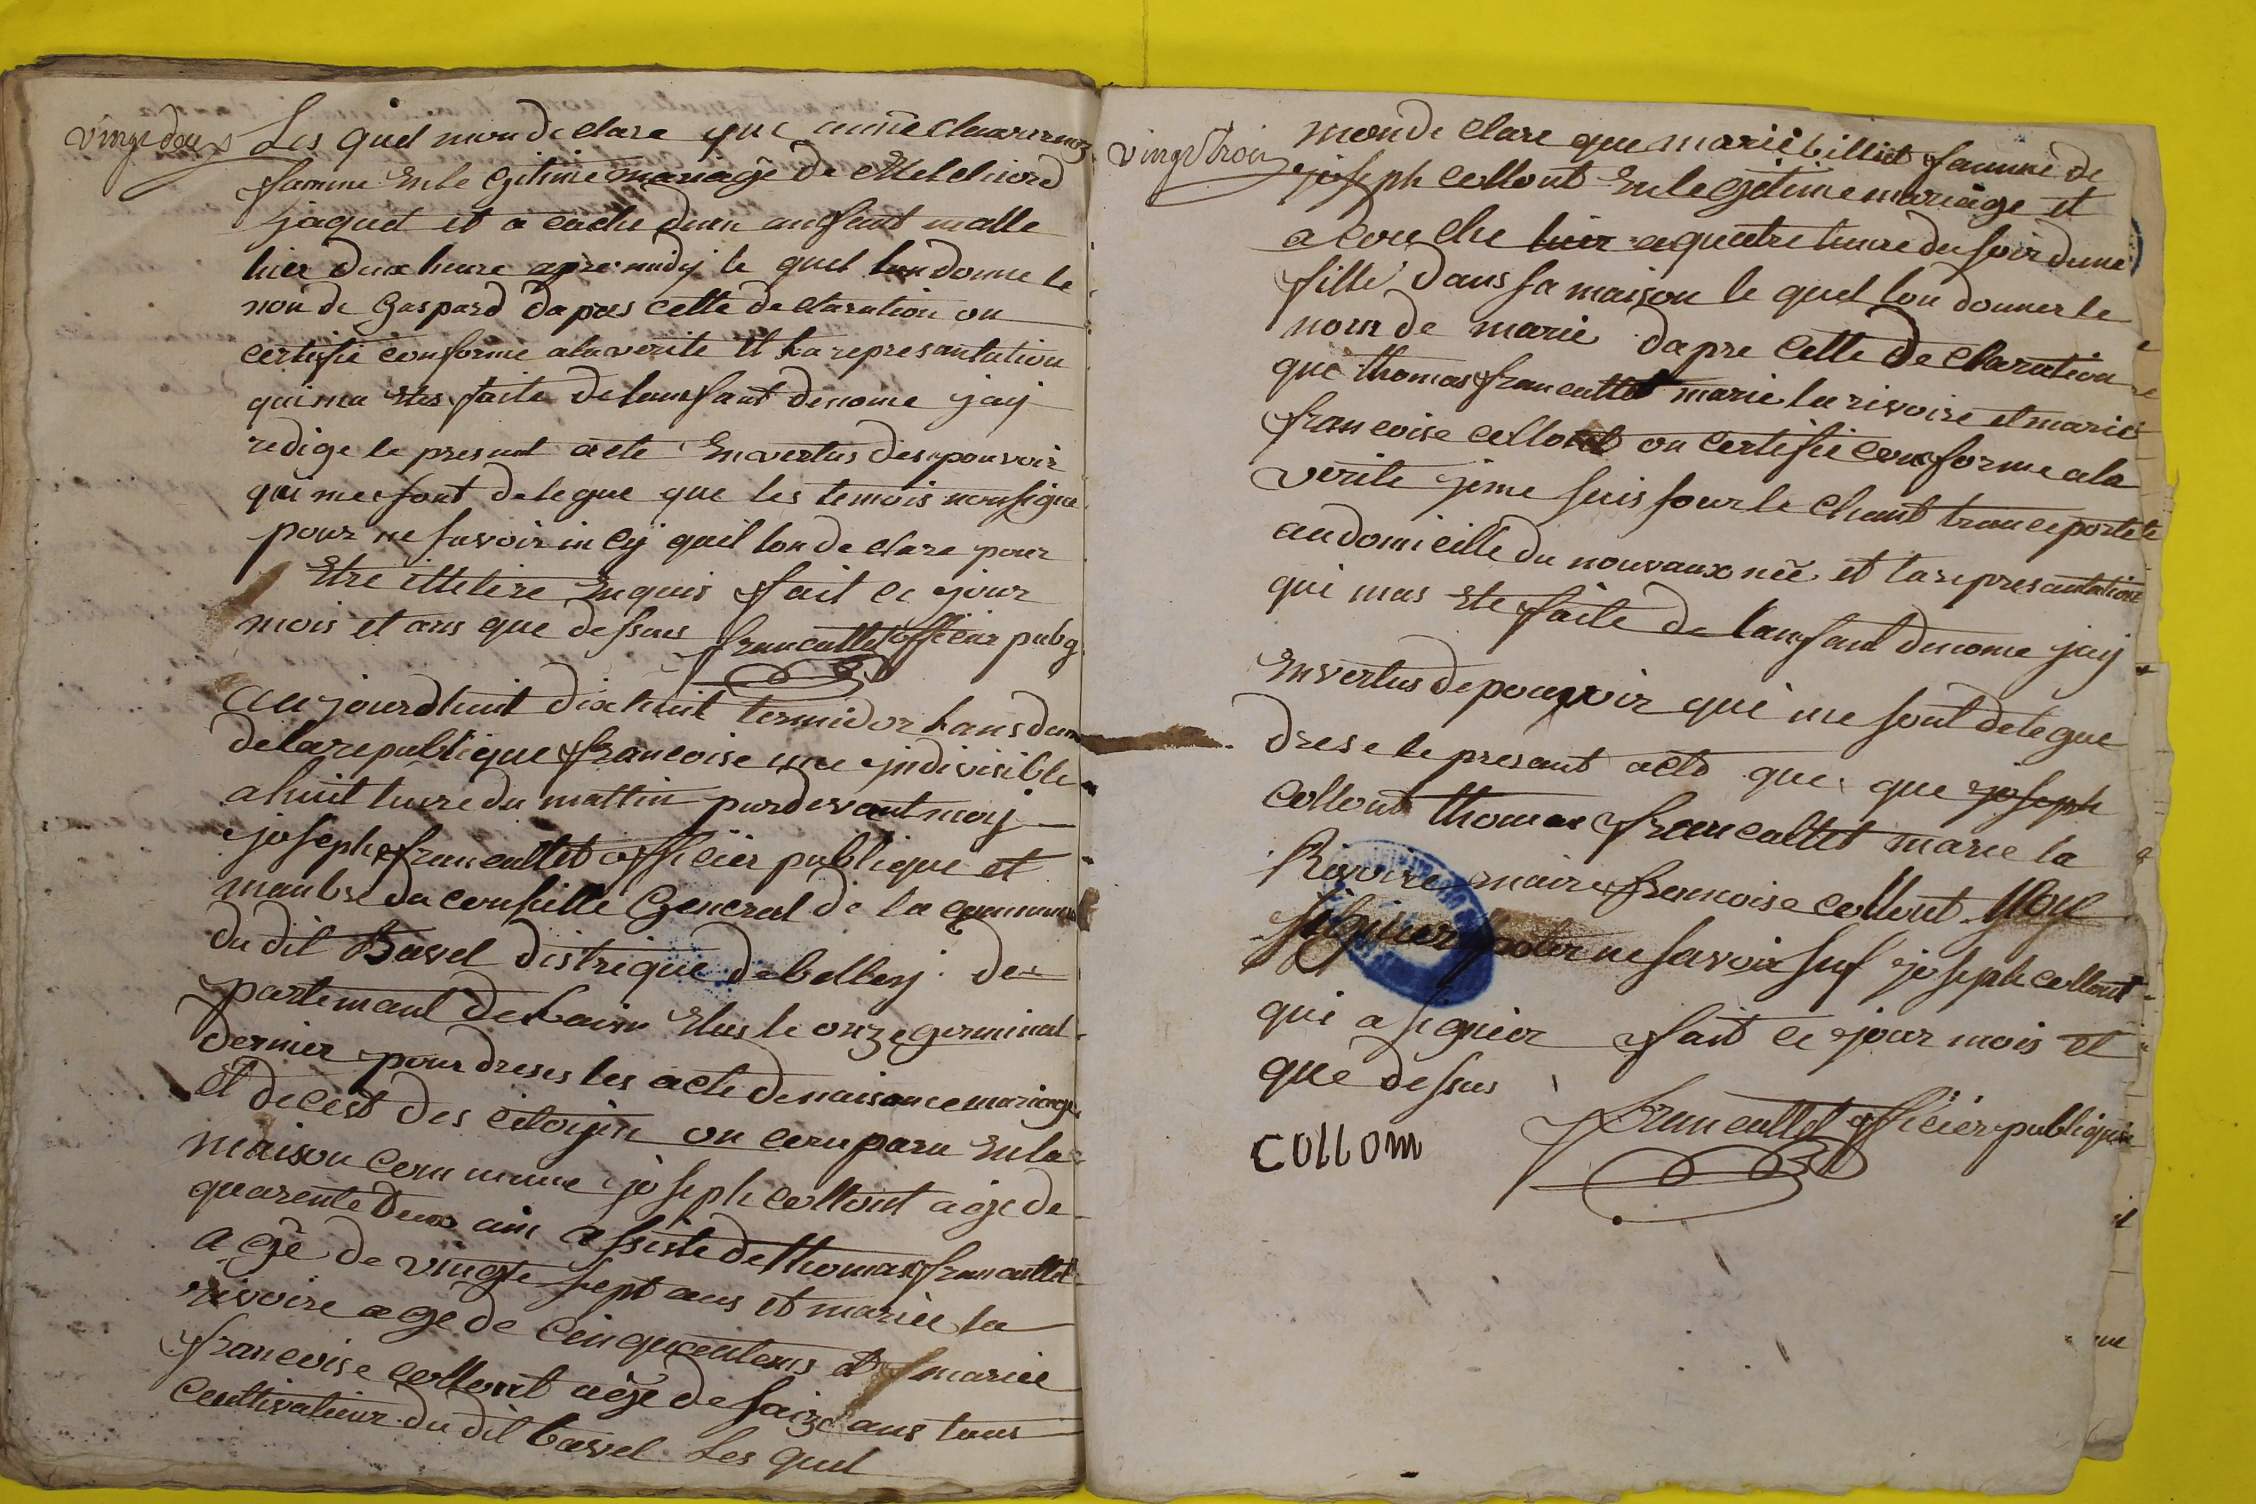 vingt deux
Les quel mon declare que
famme En le gitime mariage de Melchiord
jaquet et a couche dun anfant malle
hier deux heure apre midy le quel lon donne le
non de Gaspard dapres cette declaration on
certifie conforme a la verite Et la represantation
qui ma Etes faite de lanfant denome jay
redige le presant acte En vertus des pouvoir
qui me sont delegue que les temois non signe
pour ne savoir in cy quil lon declare pour
Etre ittelire Enquis fait ce jour
mois et ans que dessus francallet officier pubq
au jourdhuit dix huit termidor lans deux
de la republique francoise une indivisible
a huit heure du mattin par devant moy
joseph francallet officier publique et
manbre du conseille General de la commune
du dit Bavel distrique de belley de
partemant de Lain Elus le onze germinal
dernier pour dreses les acte de naisance mariage
et decest des citoyin on comparu En la
maison commune joseph collont age de
quarente deux ans assiste de thomas francallet
age de vingte sept ans et marie la
rivoire age de cinquantems et marie
francoise collont age de saize ans tous
cultivateur du dit bavel Les quel
vingt trois
mon declare que marie billiet famme de
joseph collont En legitime mariage et
a couche hier a quatre heure du soir dune
fille dans sa maison le quel lon donner le
nom de marie dapre cette declaration
que thomas francallet marie la rivoire et marie
francoise collont on certifie conforme a la
verite je me suis sour le chant tranceporte
au domicille du nouvaux née et la represantation
qui mas Ete faite de lanfant denome jay
En vertus de pouvoir qui me sont delegue
drese le presant acte que que joseph
collont thomas francallet marie la
Rivoire marie francoise collont non
signer pour ne savoir suf joseph collont
qui a signier fait ce jour mois et
que dessus
COLLOM
francallet officier publique